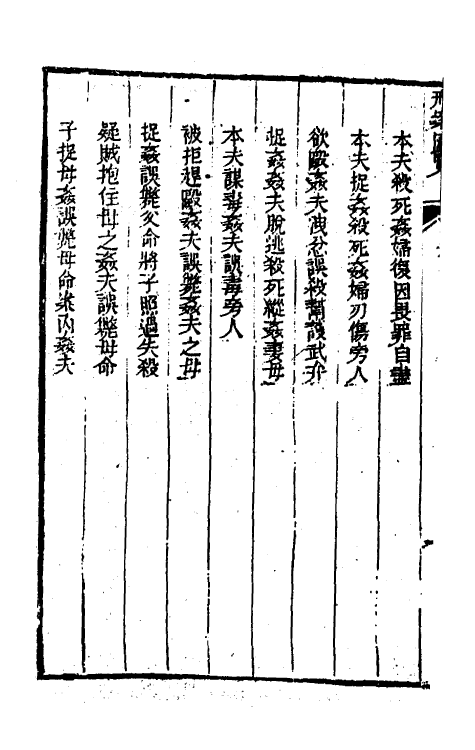 本夫殺死姦婦復因畏罪自盡
本夫捉姦殺死姦婦刃傷旁人
欲毆姦夫洩忿誤殺幫護武弁
捉姦姦夫脫逃殺死縱姦妻母
本夫謀毒姦夫誤毒旁人
被拒趕毆姦夫誤斃姦夫之母
捉姦誤斃父命將子照過失殺
疑賊抱住母之姦夫誤斃母命
子捉母姦誤斃母命案內姦夫